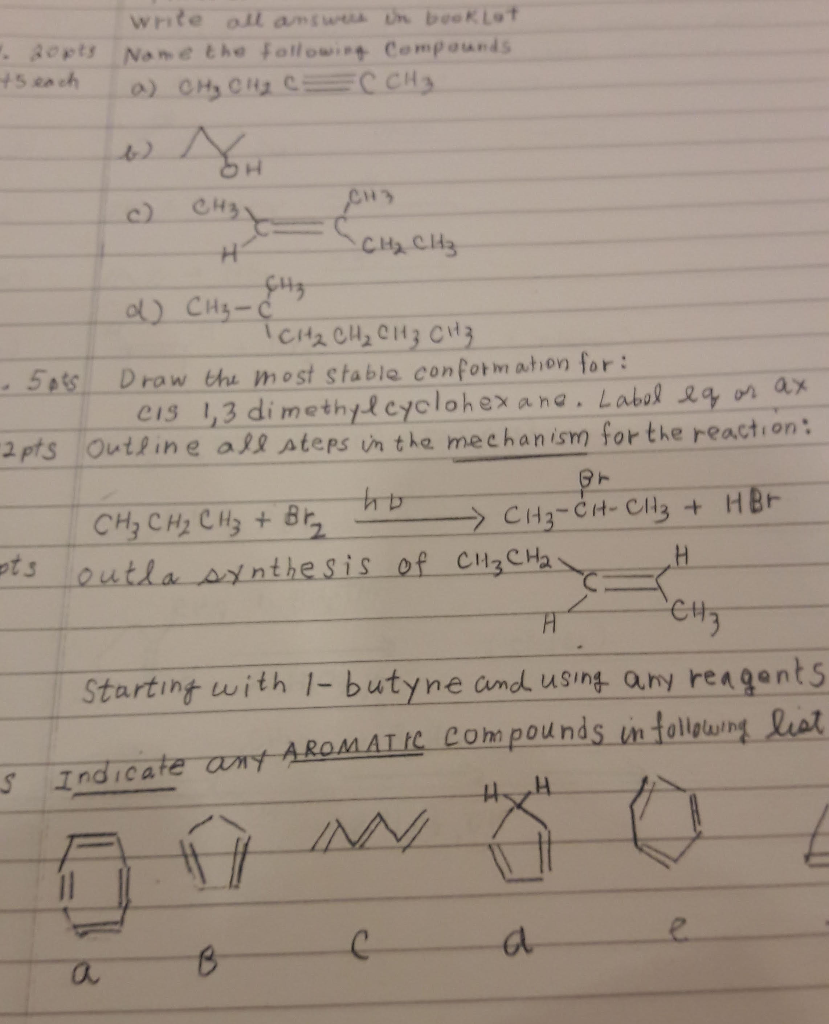 Write all answers in booklet
. 20pts Name the following Compounds
+5 each a) CH3 CH2 C≡C CH3
b) OH
c) CH3 CH3
C=C
H CH2 CH3
CH3
d) CH3-C
CH2 CH2 CH3 CH3
. 5pts Draw the most stable conformation for:
cis 1,3 dimethylcyclohexane. Label eq or ax
2pts Outline all steps in the mechanism for the reaction:
Br
CH3 CH2 CH3 + Br2 hυ → CH3-CH-CH3 + HBr
pts outla synthesis of CH3CH2 H
C=
H CH3
Starting with 1-butyne and using any reagents
s Indicate any AROMATIC compounds in following list
H H
a B c d e